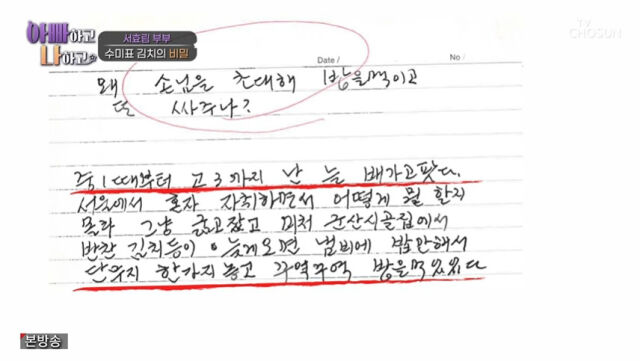 아빠하고 나하고
서효림 부부
수미표 김치의 비밀
TV CHOSUN
Date /
No /
왜 손님을 초대해 밥을 먹이고
또 싸주나?
중1때부터 고3까지 난 늘 배가 고팟다.
서울에서 혼자 자취하면서 어떻게 뭘 할지
몰라 그냥 굶고 잤고 미처 군산시골집에서
반찬 김치등이 늦게오면 냄비에 밥만해서
단무지 한가지 놓고 꾸역꾸역 밥을 먹었었다
본방송